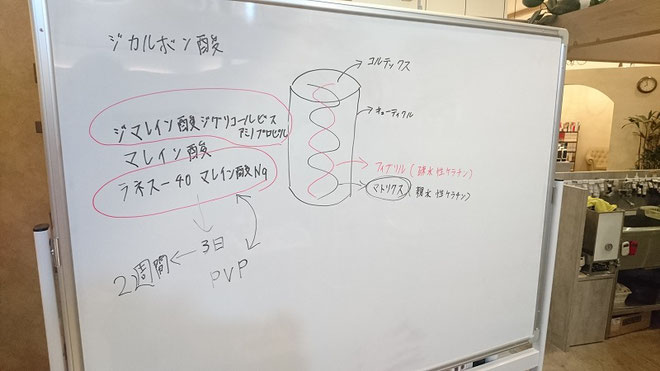 ジカルボン酸
ジマレイン酸ジグリコールビス
アミノプロピル
マレイン酸
ラネスー40 マレイン酸Na
3日
2週間
PVP
コルテックス
キューティクル
フィブリル(疎水性ケラチン)
マトリクス(親水性ケラチン)